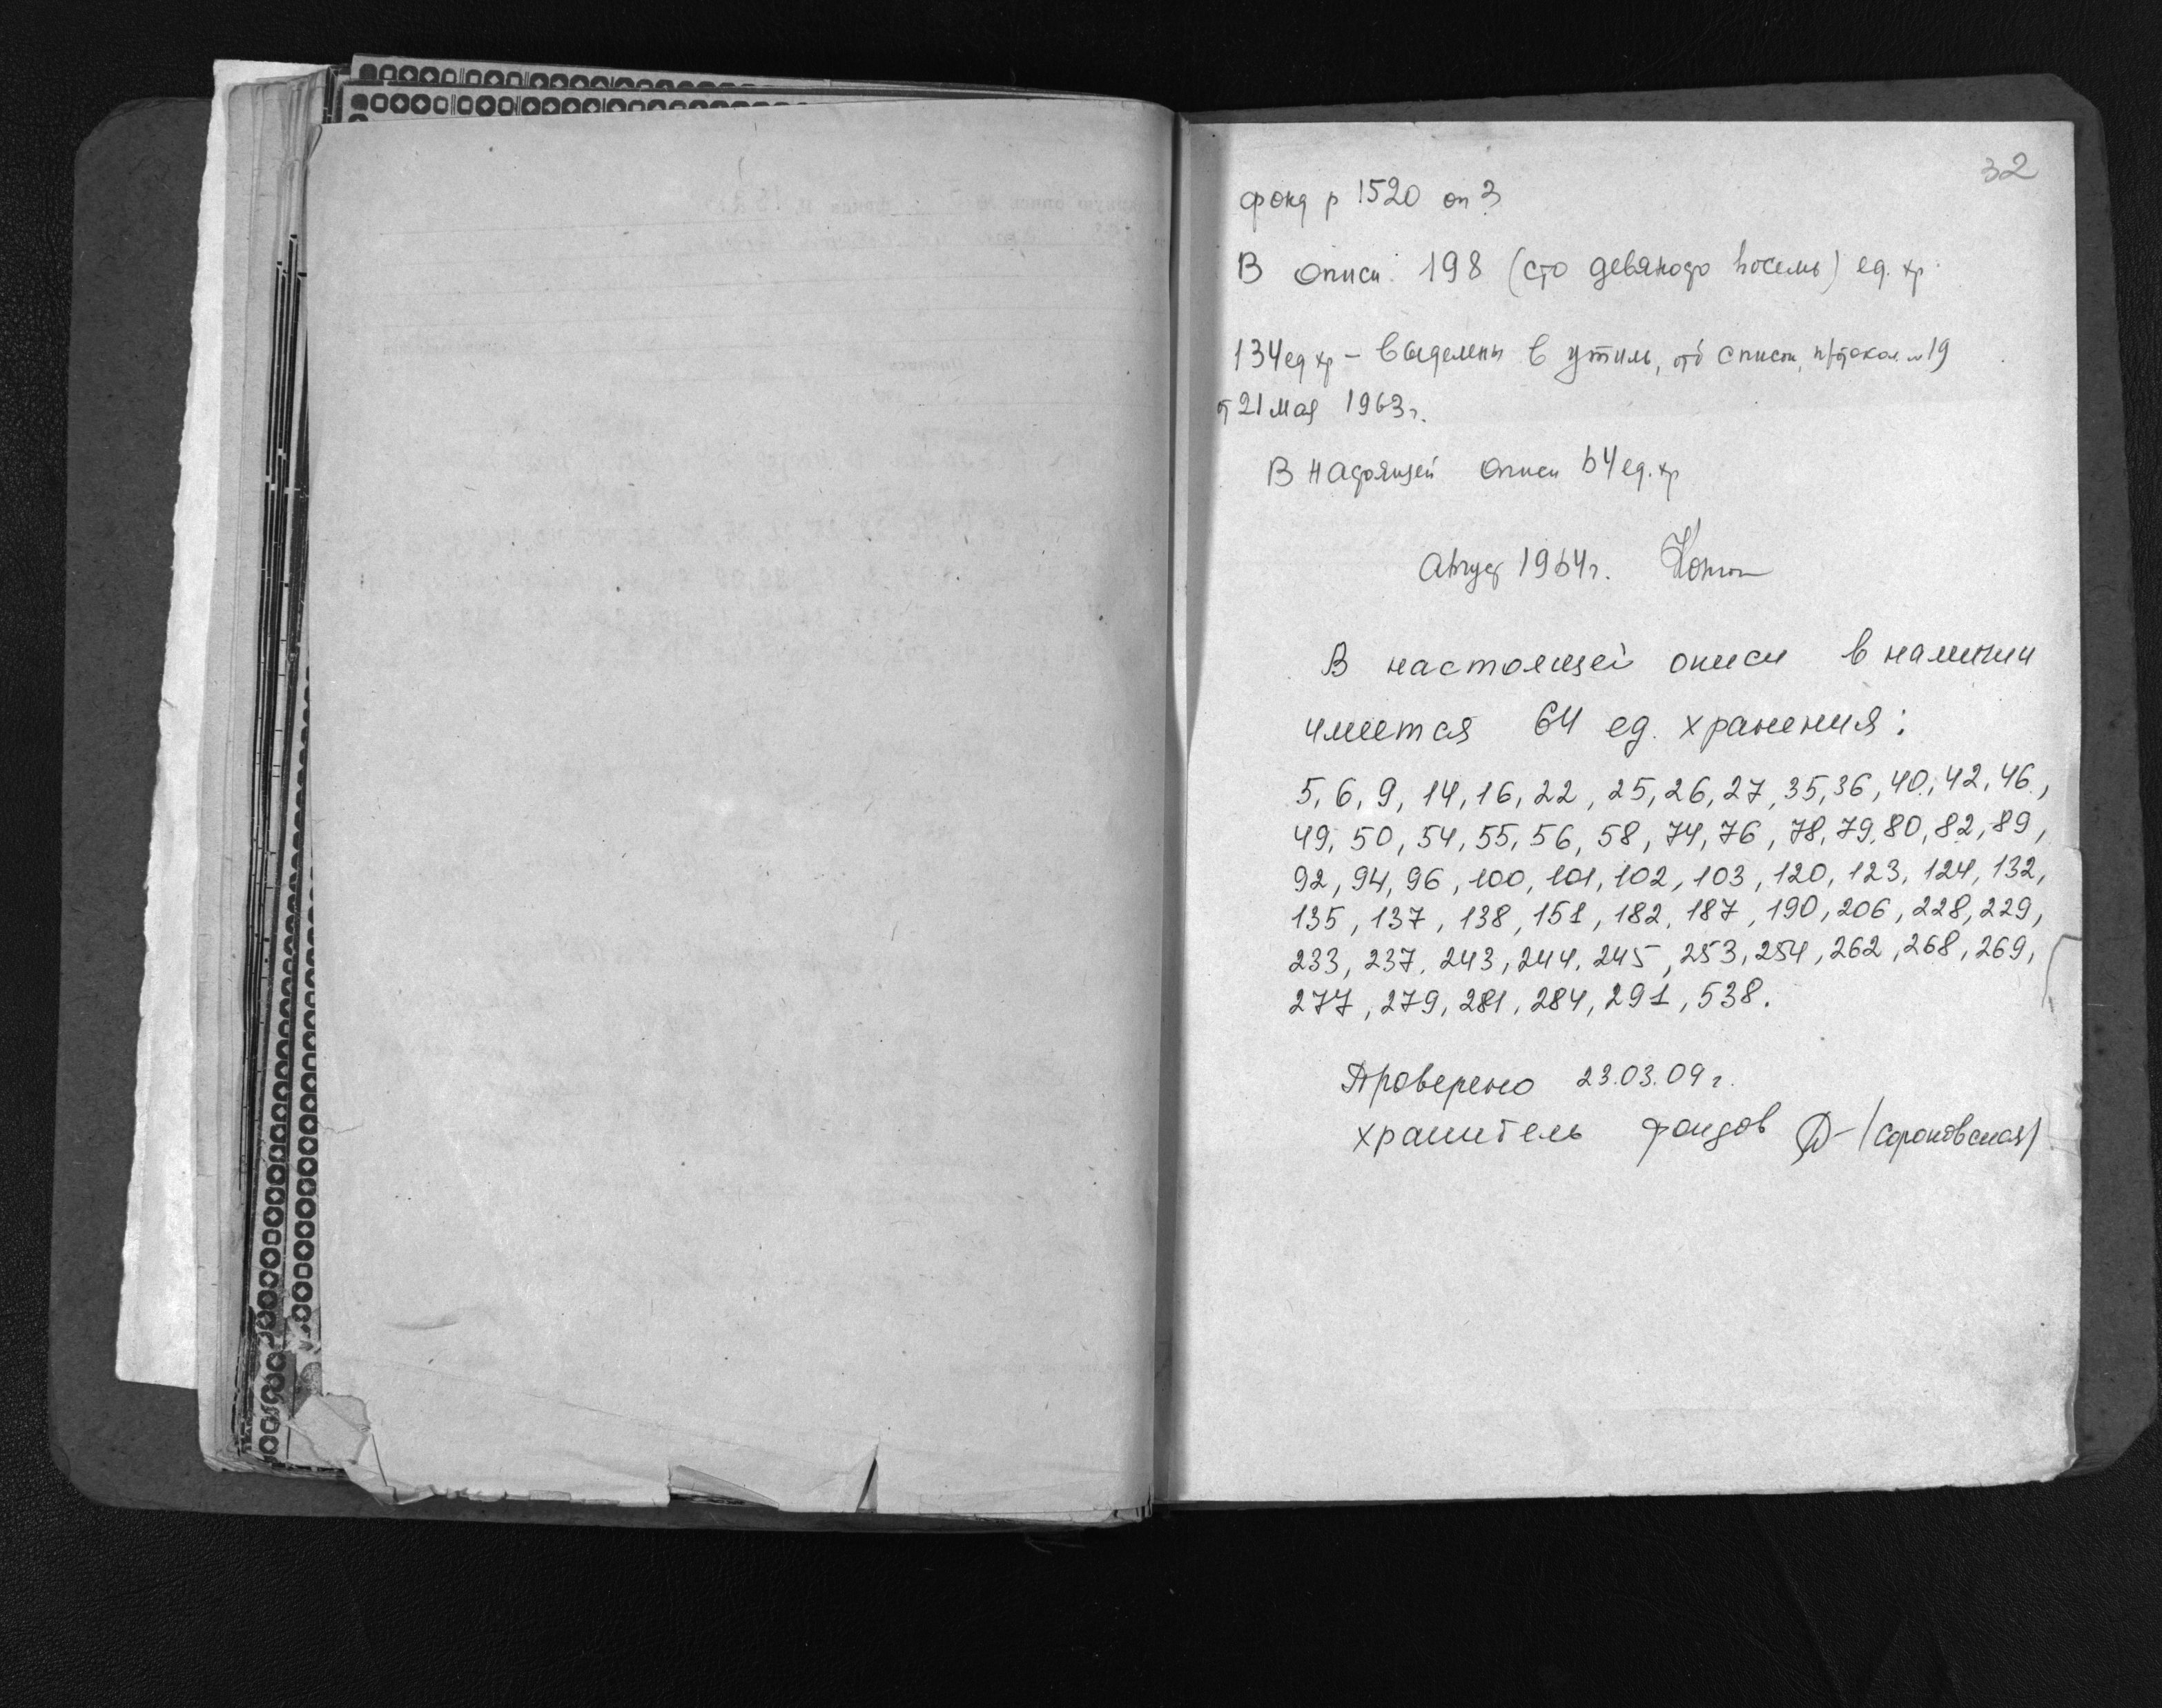 32
фонд р 1520 оп 3
В описи 198 (сто девяносто восемь) ед. хр.
134 ед хр – выделены в утиль, отб списки, протокол № 19
от 21 мая 1963 г.
В настоящей описи 64 ед. хр
Август 1964 г.
В настоящей описи в наличии
имеется 64 ед. хранения:
5, 6, 9, 14, 16, 22, 25, 26, 27, 35, 36, 40, 42, 46,
49, 50, 54, 55, 56, 58, 74, 76, 78, 79, 80, 82, 89,
92, 94, 96, 100, 101, 102, 103, 120, 123, 124, 132,
135, 137, 138, 151, 182, 187, 190, 206, 228, 229,
233, 237, 243, 244, 245, 253, 254, 262, 268, 269,
277, 279, 281, 284, 291, 538.
Проверено 23.03.09 г.
хранитель фондов (Сороковская)